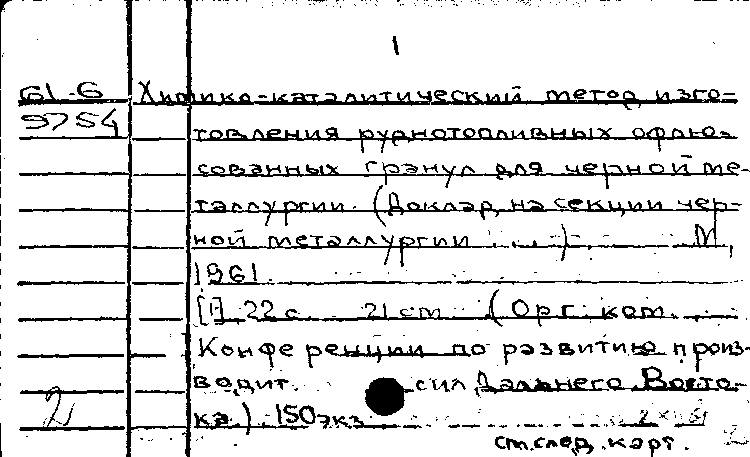 1
61-6 Химико-каталитический метод изго-
9754 товления руднотопливных офлю-
сованных гранул для черной ме-
таллургии. (Доклад на секции чер-
ной металлургии ...). М.,
1961.
[1], 22 с. 21 см. (Орг. ком.
Конференции по развитию произ-
водит. сил Дальнего Восто-
2 ка). 150 экз.
см. след. карт.